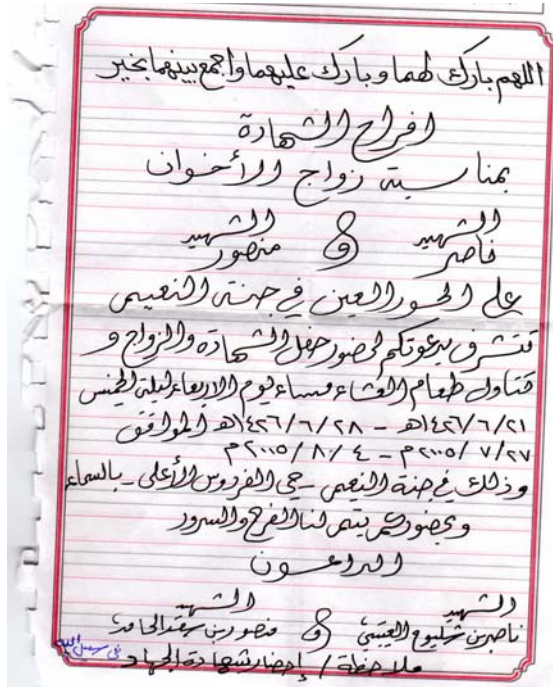 اللهم بارك لهما وبارك عليهما واجمع بينهما بخير
افراح الشهادة
بمناسبة زواج الأخوان
الشهيد الشهيد
ناصر و منصور
على الحور العين في جنة النعيم
نتشرف بدعوتكم لحضور حفل الشهادة والزواج و
تناول طعام العشاء مساء يوم الاربعاء ليلة الخميس
١٤٢٦/٦/٢١هـ - ١٤٢٦/٦/٢٨هـ الموافق
٢٠٠٥/٧/٢٧م - ٢٠٠٥/٨/٤م
وذلك في جنة النعيم - حي الفردوس الأعلى - بالسماء
وبحضوركم يتم لنا الفرح والسرور
الداعون
الشهيد الشهيد
ناصر بن شليويح العتيبي و منصور بن
في سبيل الله
ملاحظة / إحضار شهادة الجهاد